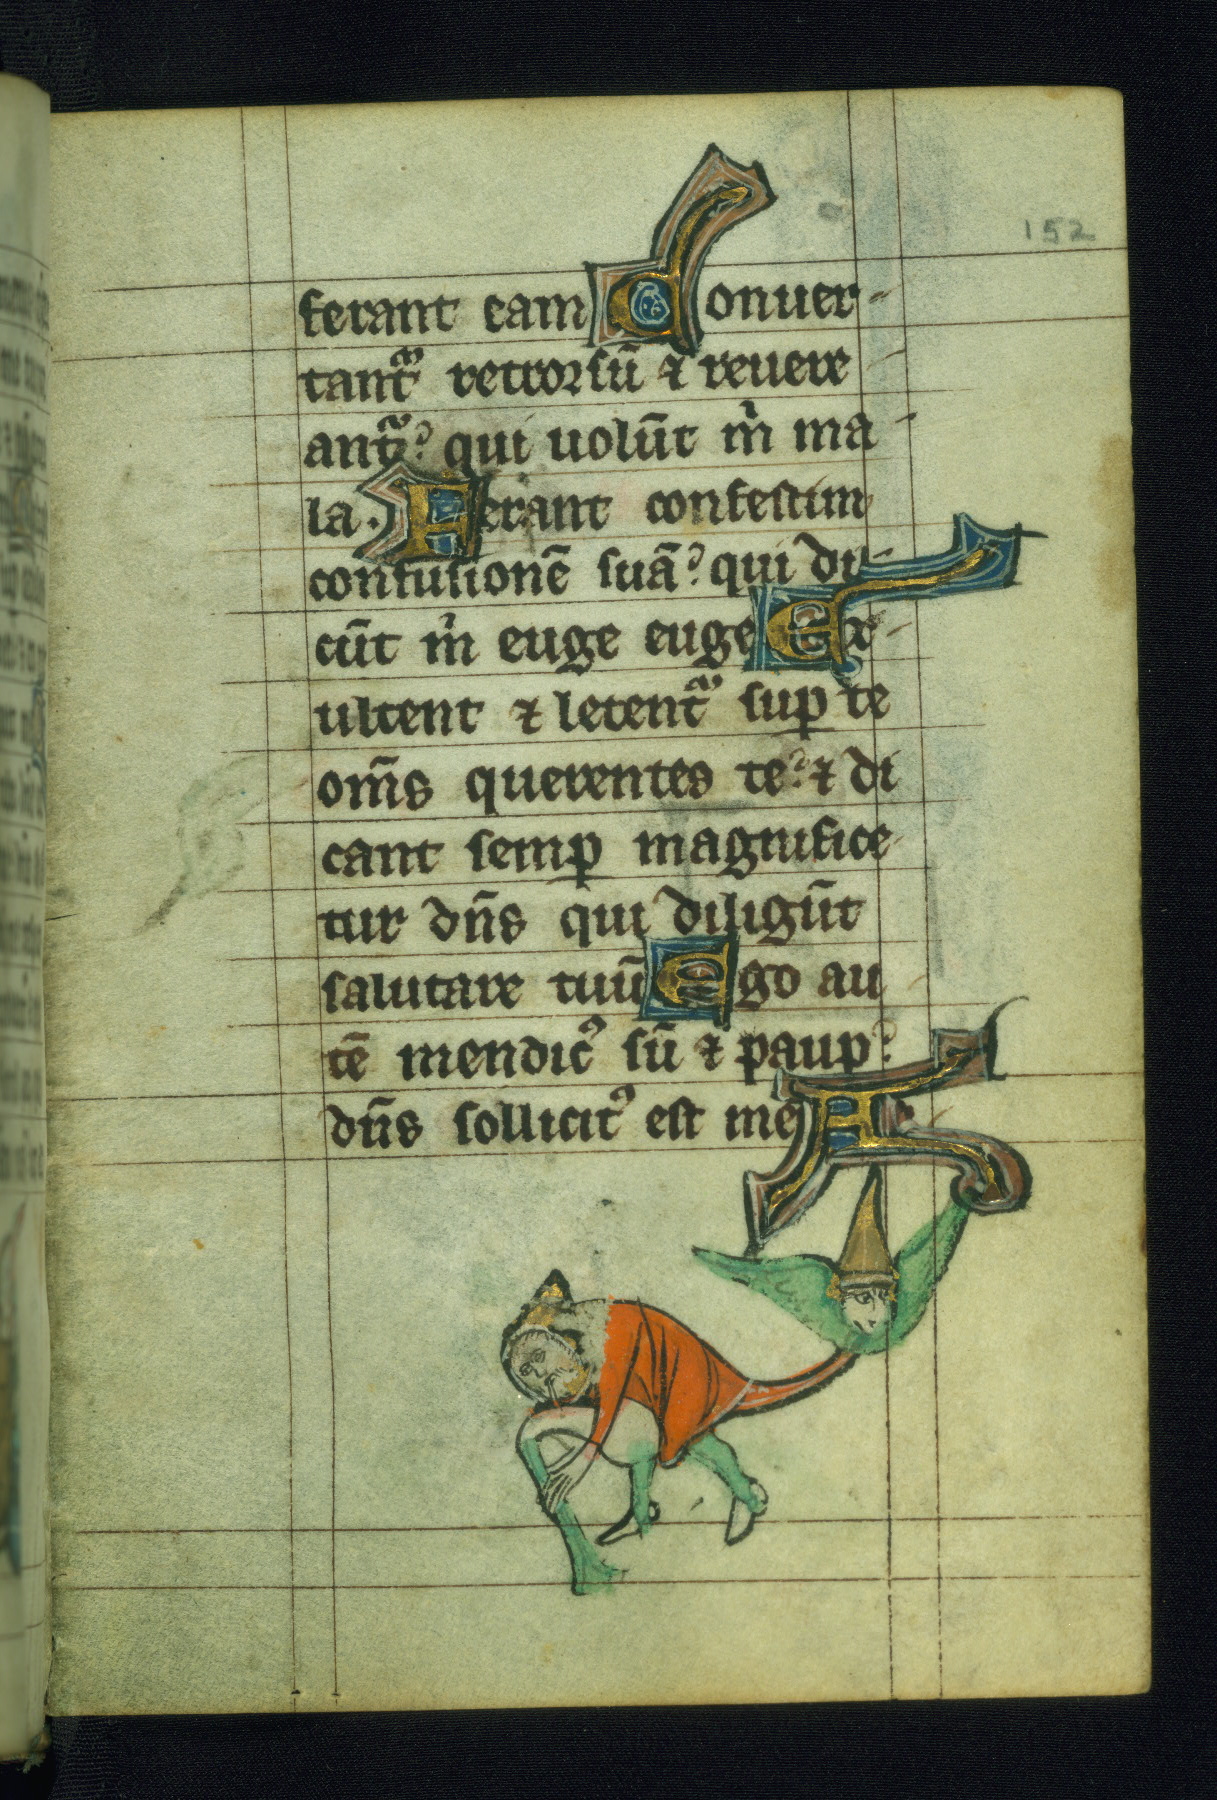 152
ferant eam Conuer-
tantᷣ retrorsū ⁊ reuere
antᷣ? qui uolūt m̍ ma-
la. Ferant confestim
confusionē suā? qui di-
cūt m̍ euge euge Ex-
ultent ⁊ letentᷣ sup̱ te
om̄s querentes te? ⁊ di
cant semp̱ magnifice
tur dn̄s qui diligūt
salutare tuū Ego au
tē mendicꝰ sū ⁊ paup̱?
dn̄s sollicitꝰ est mei A